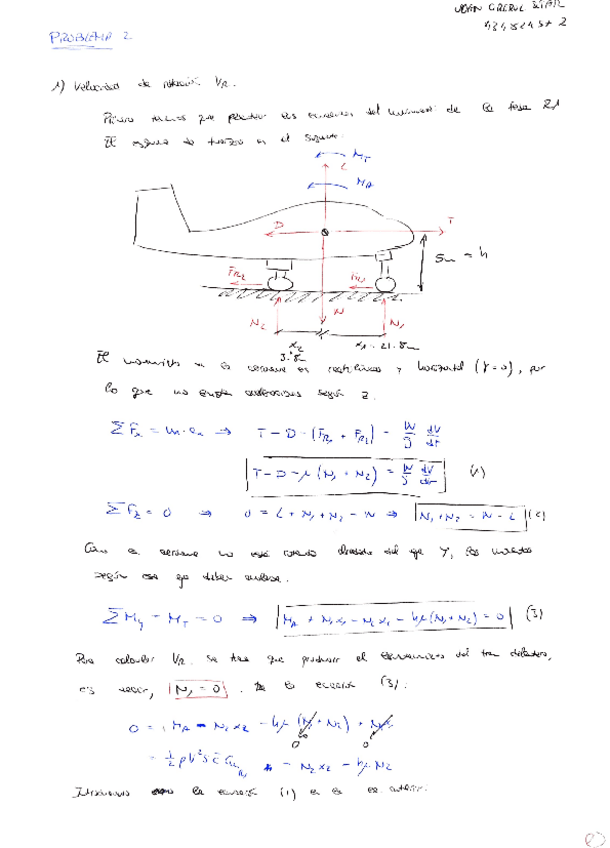 PROBLEMA 2
1) Velocidad de rotación V_R.
Primero tenemos que plantear las ecuaciones del movimiento de la fase R1
El esquema de fuerzas es el siguiente:
M_T
L
M_A
D
T
5m = h
F_R2
N_2
W
N_1
x_2
3.5m
x_1 = 21.8m
El movimiento es rectilíneo y horizontal (γ=0), por
lo que no existen aceleraciones según z.
ΣF_x = m·a_x ⇒ T - D - (F_R1 + F_R2) = W/g dV/dt
T - D - μ(N_1 + N_2) = W/g dV/dt (1)
ΣF_z = 0 ⇒ 0 = L + N_1 + N_2 - W ⇒ N_1 + N_2 = W - L (2)
Como no está rotando alrededor del eje Y, los momentos
según ese eje deben anularse.
ΣM_y - M_T = 0 ⇒ M_A + N_1x_1 - N_2x_2 - hμ(N_1 + N_2) = 0 (3)
Para calcular V_R se tiene que producir el del tren delantero,
es decir, N_1 = 0. la ecuación (3):
0 = M_A - N_2x_2 - hμ(N_1 + N_2) +
0 0
= 1/2 ρV²S c̄ C_M - N_2x_2 - hμN_2
Introduciendo la ecuación (1) en la ec. anterior: